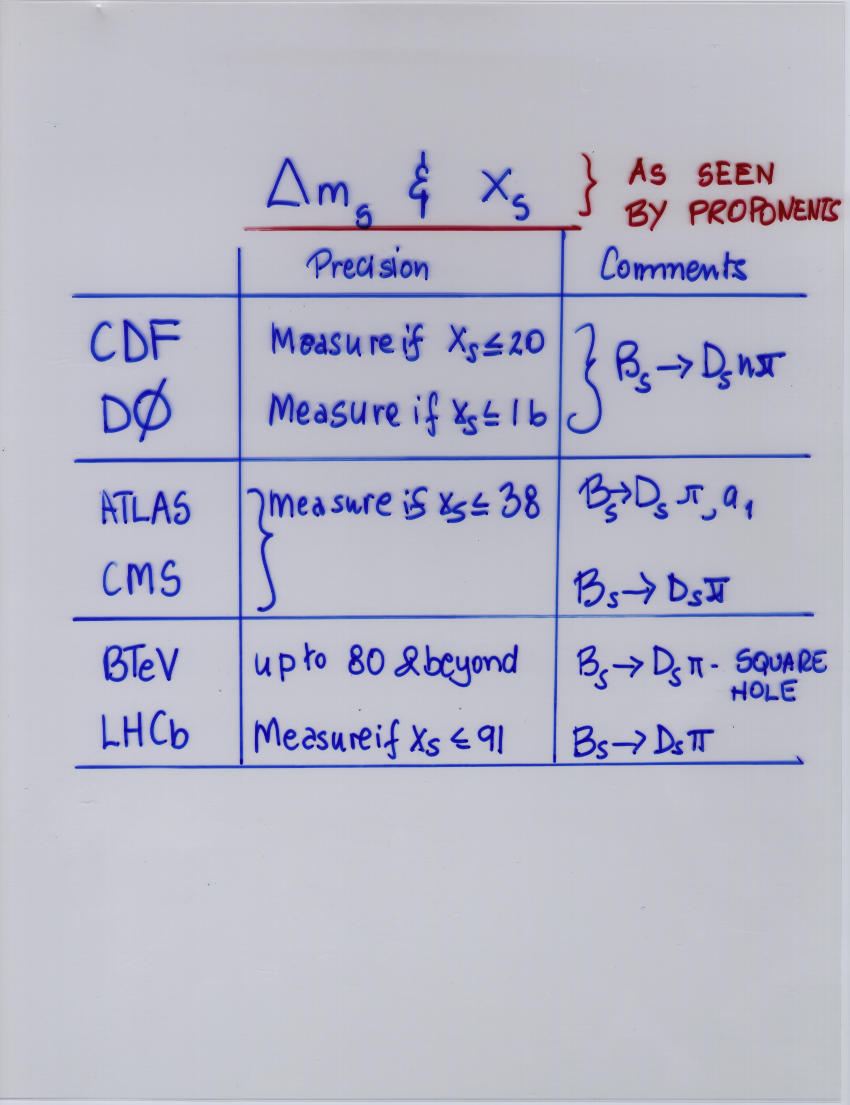 Δm_s & x_s } AS SEEN
BY PROPONENTS
Precision Comments
CDF Measure if x_s ≤ 20 } B_s → D_s nπ
DØ Measure if x_s ≤ 16
ATLAS } Measure if x_s ≤ 38 B_s → D_s π, a_1
CMS B_s → D_s π
BTeV up to 80 & beyond B_s → D_s π - SQUARE
HOLE
LHCb Measure if x_s ≤ 91 B_s → D_s π